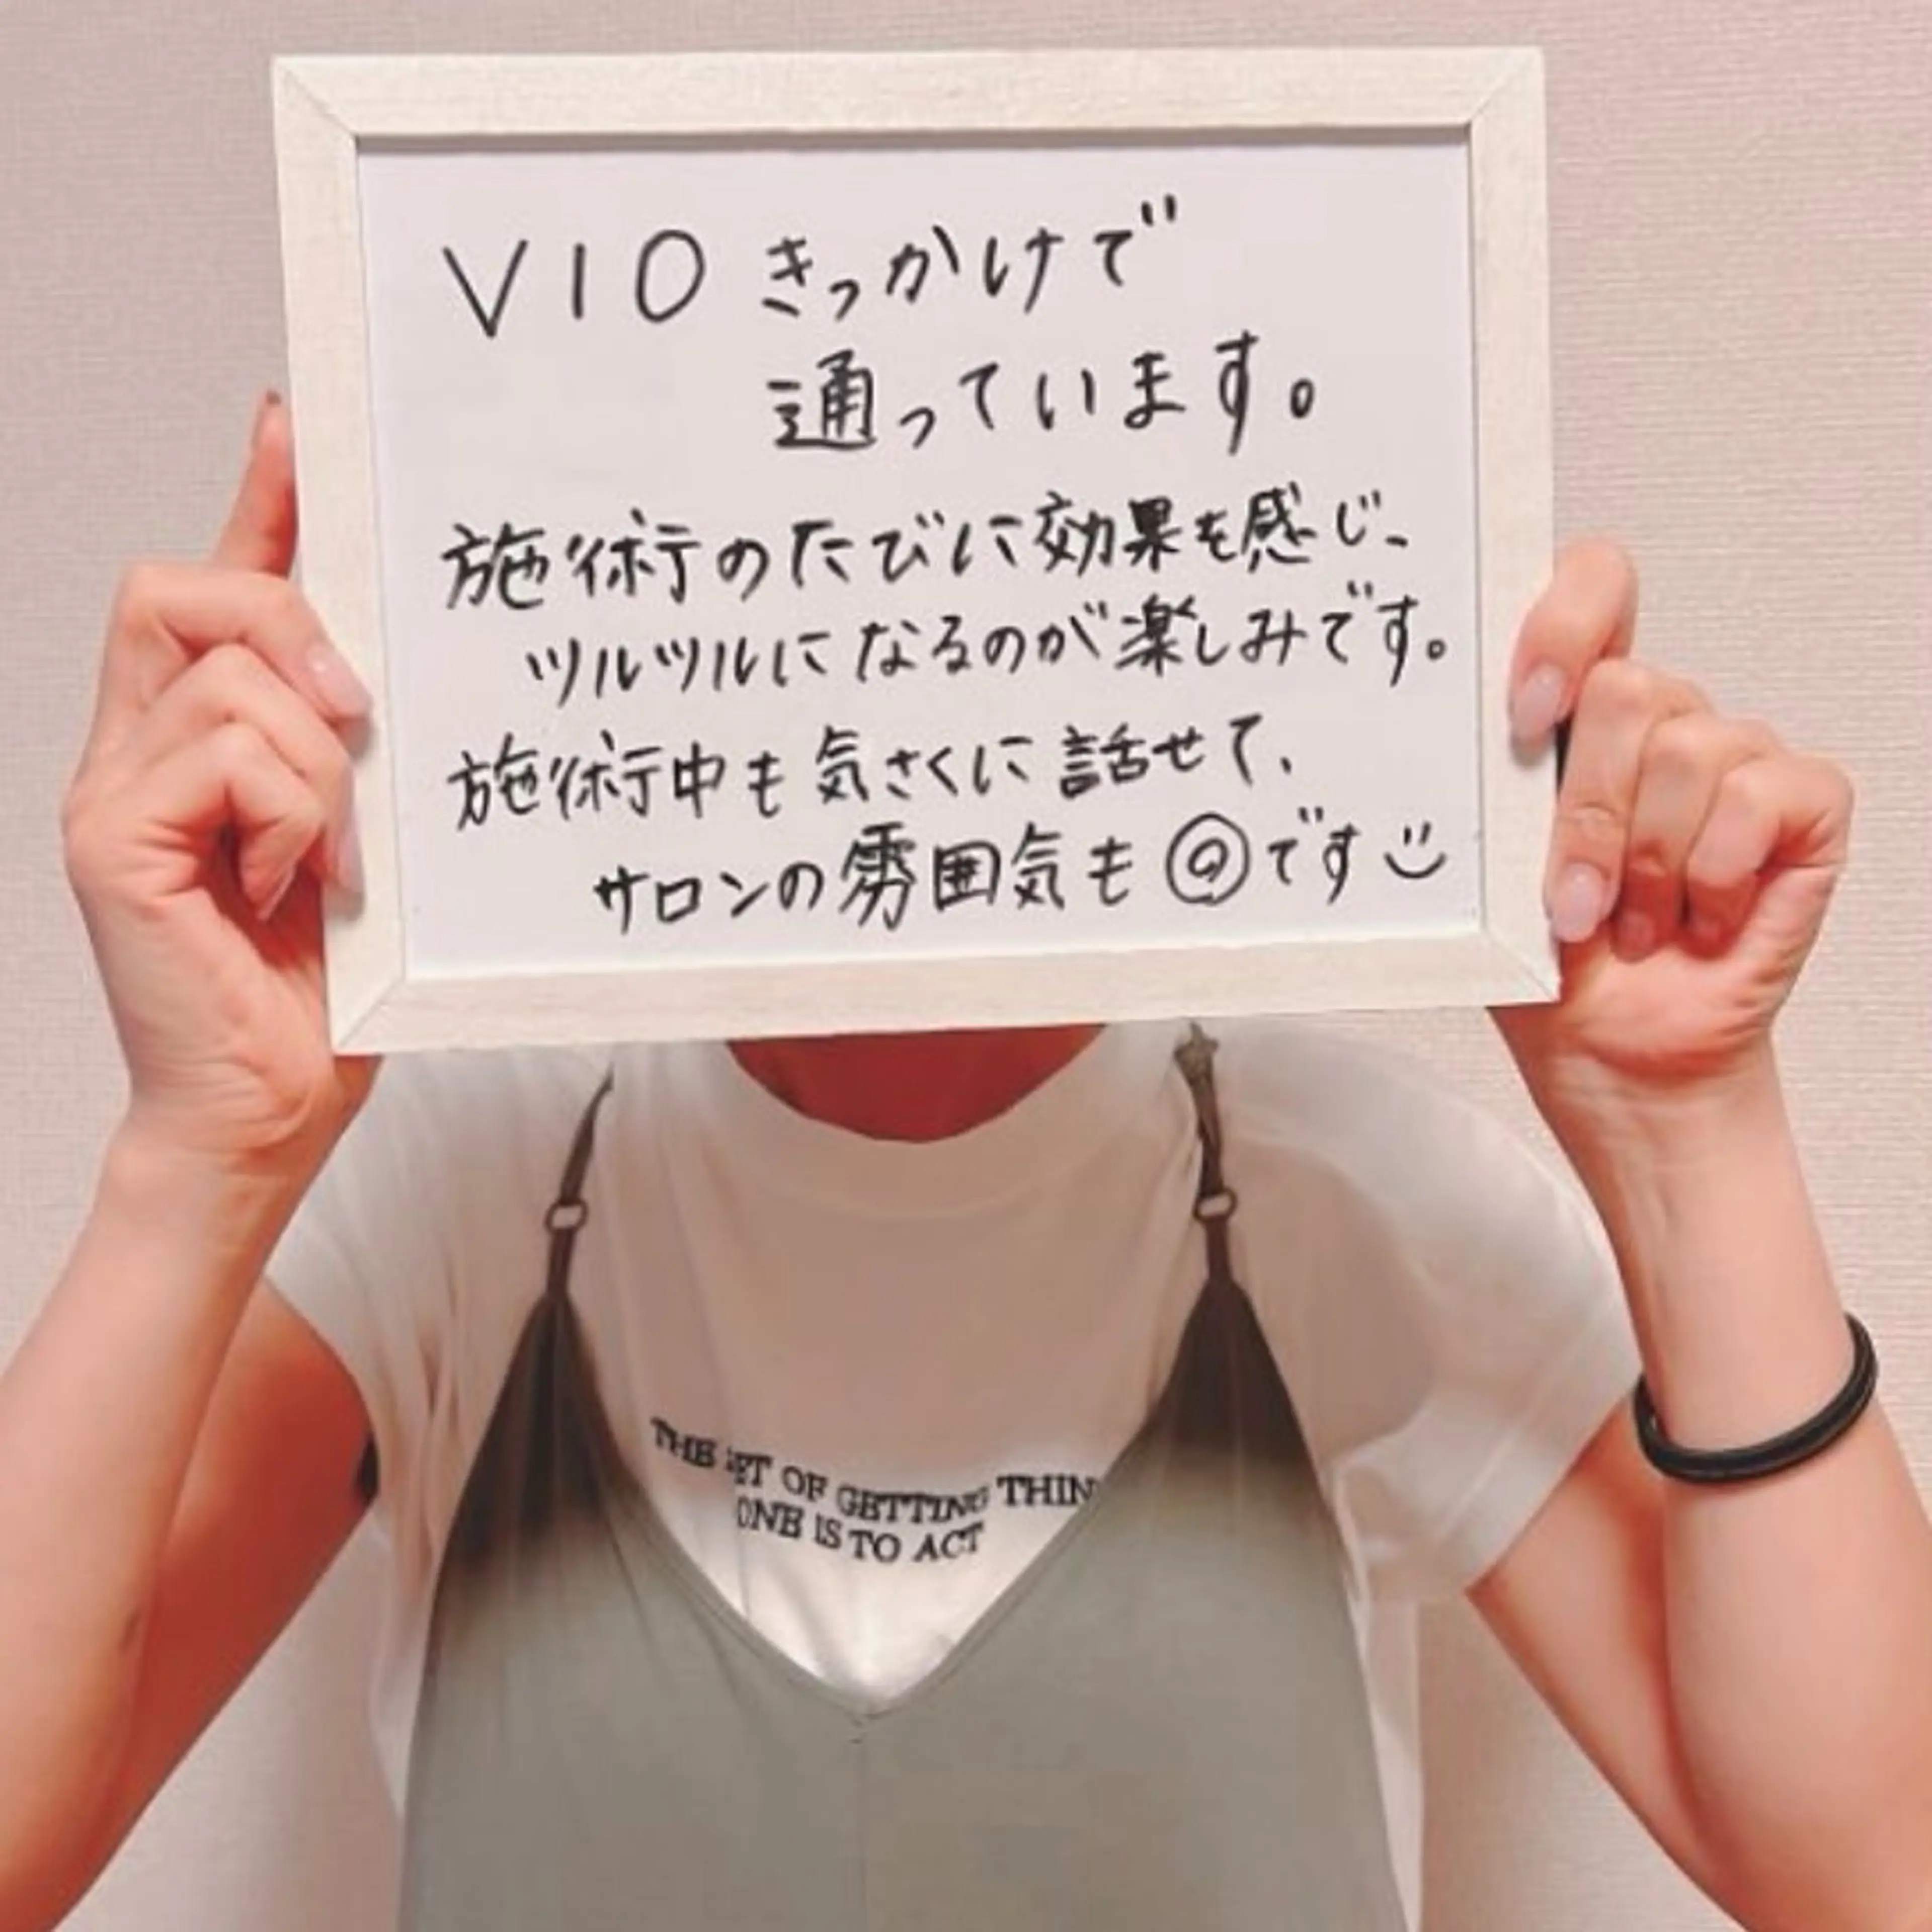 VIO きっかけで
通っています。
施術のたびに効果を感じ、
ツルツルになるのが楽しみです。
施術中も気さくに話せて、
サロンの雰囲気も◎です
THE OF GETTING THIN
ONE IS TO ACT